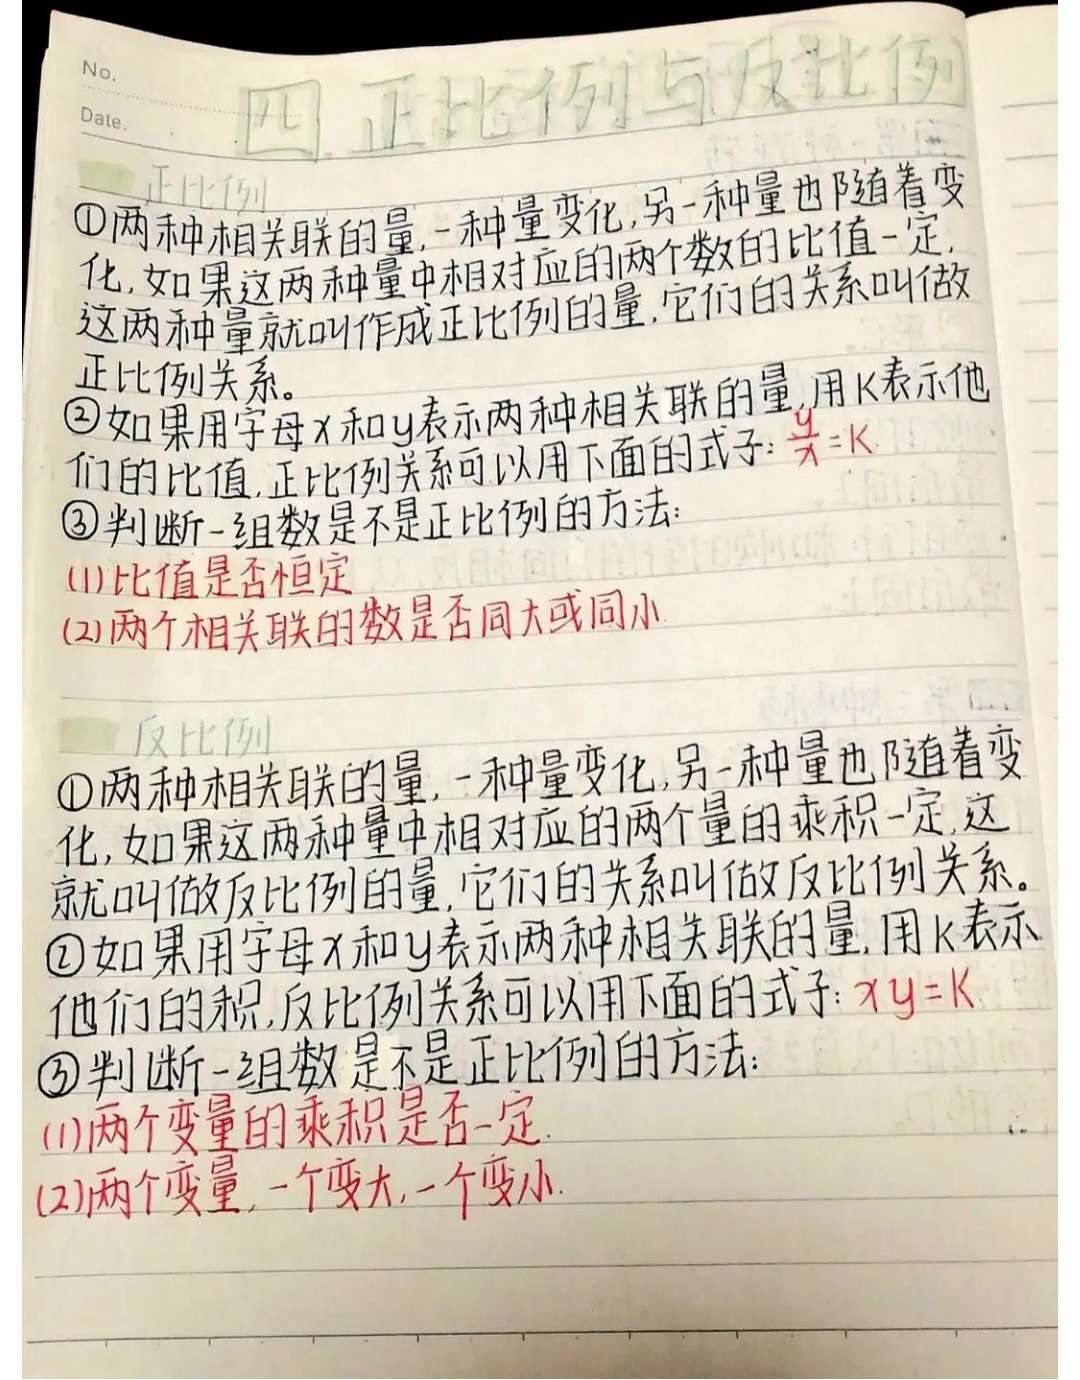 No.
Date.
四.正比例与反比例
正比例
①两种相关联的量,一种量变化,另一种量也随着变
化,如果这两种量中相对应的两个数的比值一定,
这两种量就叫作成正比例的量,它们的关系叫做
正比例关系。
②如果用字母x和y表示两种相关联的量,用K表示他
们的比值,正比例关系可以用下面的式子:y/x=K.
③判断一组数是不是正比例的方法:
(1)比值是否恒定
(2)两个相关联的数是否同大或同小.
反比例
①两种相关联的量,一种量变化,另一种量也随着变
化,如果这两种量中相对应的两个量的乘积一定,这
就叫做反比例的量,它们的关系叫做反比例关系。
②如果用字母x和y表示两种相关联的量,用K表示
他们的积,反比例关系可以用下面的式子:xy=K.
③判断一组数是不是正比例的方法:
(1)两个变量的乘积是否一定.
(2)两个变量,一个变大,一个变小.